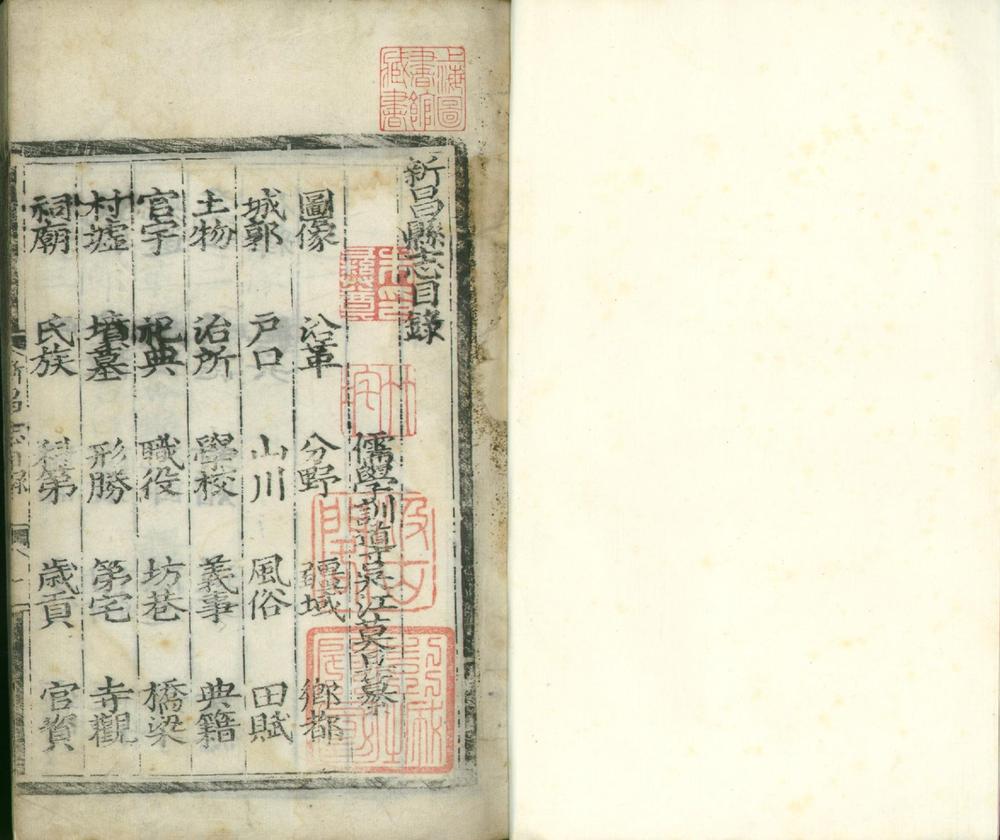 新昌縣志目錄
儒學訓導吳江莫旦纂
圖像 沿革 分野 疆域 鄉都
城郭 戶口 山川 風俗 田賦
土物 治所 學校 義事 典籍
官宇 祀典 職役 坊巷 橋梁
村墟 墳墓 形勝 第宅 寺觀
祠廟 氏族 科第 歲貢 官資
新昌志目錄
上海圖書館藏書